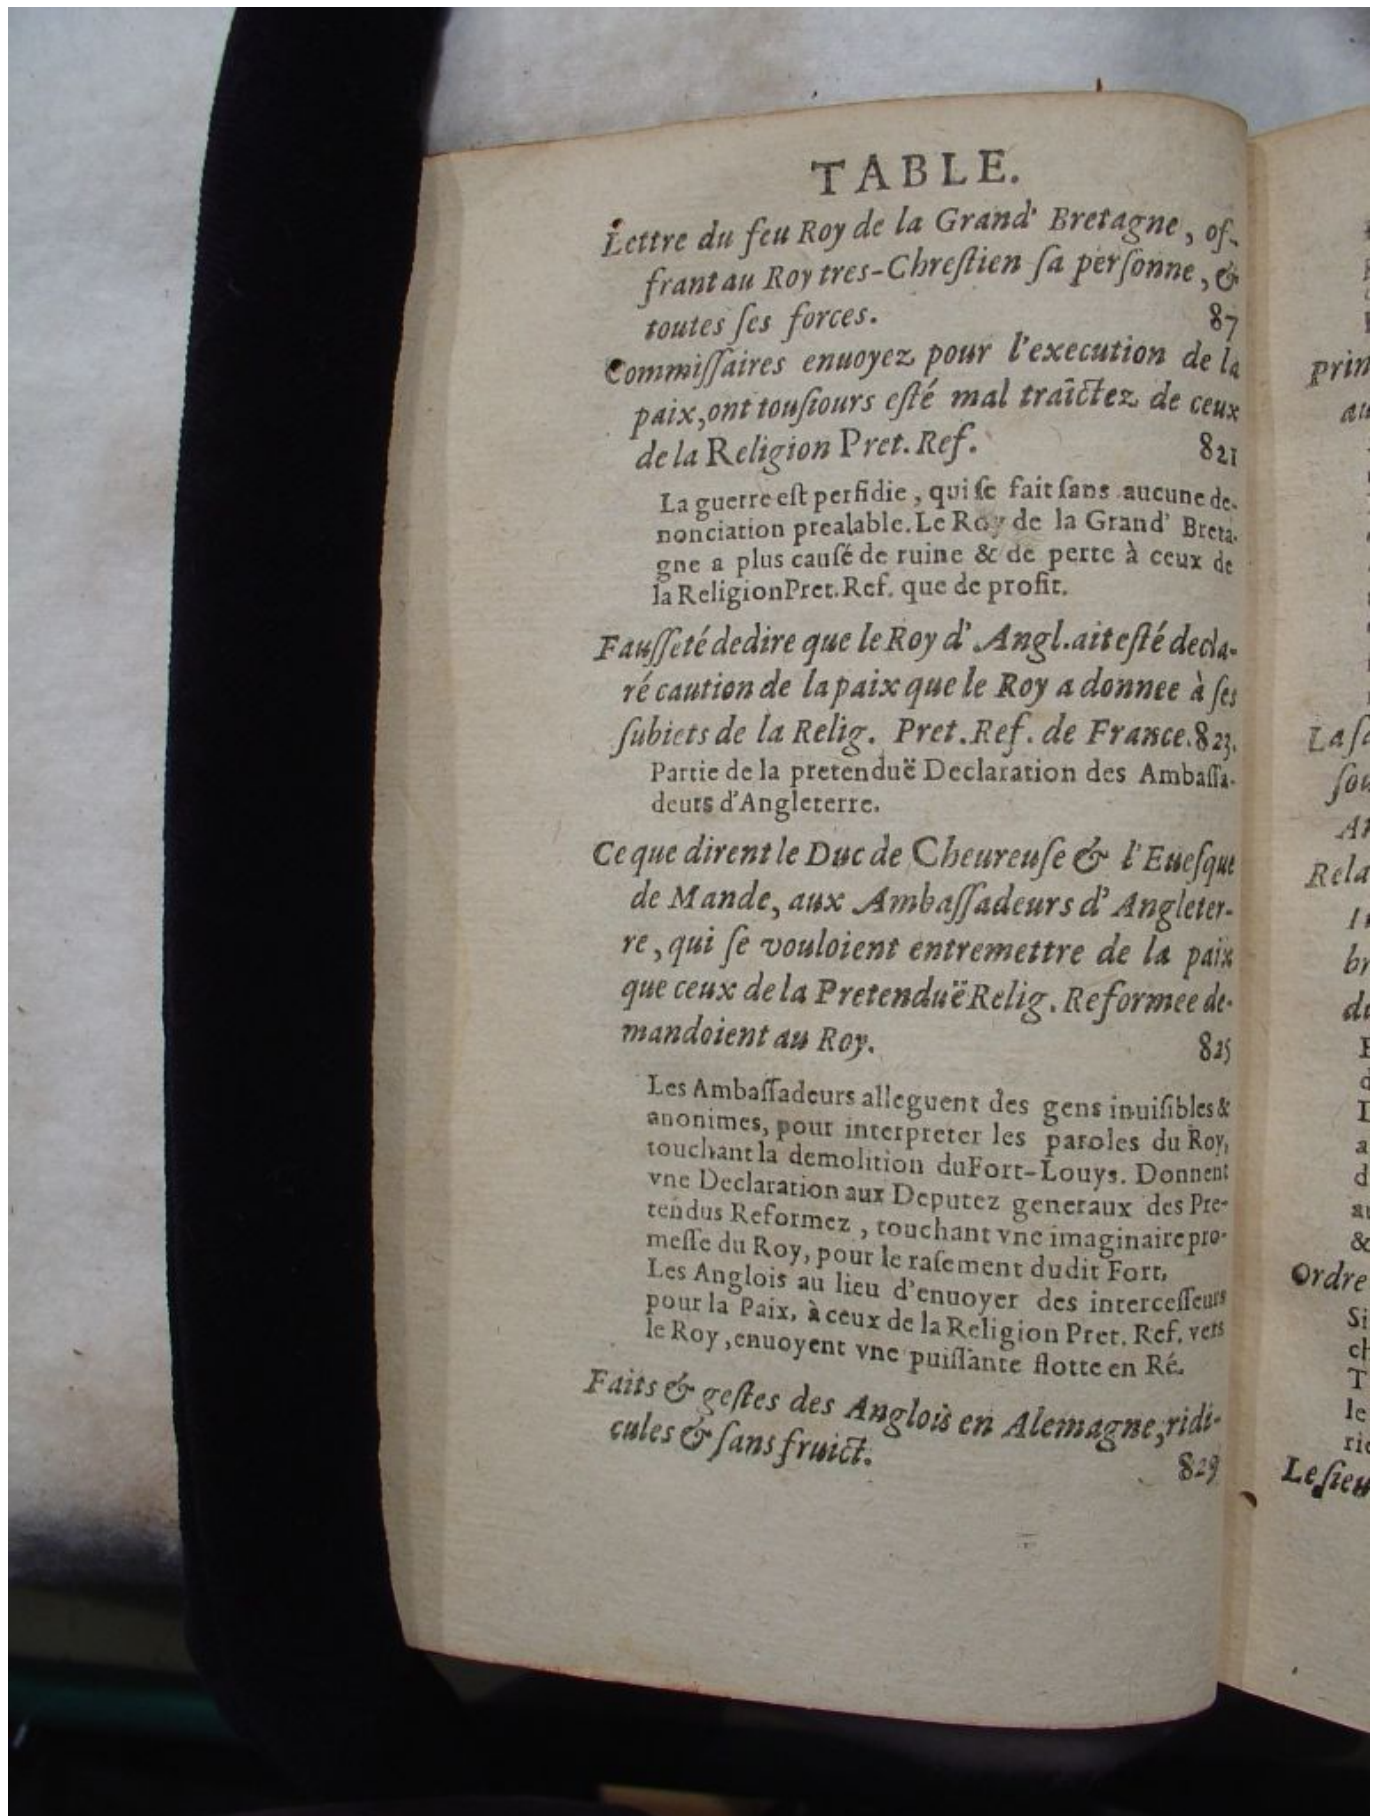 TABLE.
Lettre du feu Roy de la Grand' Bretagne, of-
frant au Roy tres-Chreſtien ſa perſonne, &
toutes ſes forces. 87
Commiſſaires enuoyez pour l'execution de la
paix, ont touſiours eſté mal traîctez de ceux
de la Religion Pret. Ref. 821
La guerre eſt perfidie, qui ſe fait ſans aucune de-
nonciation prealable. Le Roy de la Grand' Breta-
gne a plus cauſé de ruine & de perte à ceux de
la Religion Pret. Ref. que de profit.
Fauſſeté de dire que le Roy d'Angl. ait eſté decla-
ré caution de la paix que le Roy a donnee à ſes
ſubiets de la Relig. Pret. Ref. de France. 823.
Partie de la pretenduë Declaration des Ambaſſa-
deurs d'Angleterre.
Ce que dirent le Duc de Cheureuſe & l'Eueſque
de Mande, aux Ambaſſadeurs d'Angleter-
re, qui ſe vouloient entremettre de la paix
que ceux de la Pretenduë Relig. Reformee de-
mandoient au Roy. 825
Les Ambaſſadeurs alleguent des gens inuiſibles &
anonimes, pour interpreter les paroles du Roy,
touchant la demolition du Fort-Louys. Donnent
vne Declaration aux Deputez generaux des Pre-
tendus Reformez, touchant vne imaginaire pro-
meſſe du Roy, pour le raſement dudit Fort,
Les Anglois au lieu d'enuoyer des interceſſeurs
pour la Paix, à ceux de la Religion Pret. Ref. vers
le Roy, enuoyent vne puiſſante flotte en Ré.
Faits & geſtes des Anglois en Alemagne, ridi-
cules & ſans fruict. 829
prin
au
La ſa
ſou
Rela
br
du
au
&
Ordre
Si
ch
T
le
ric
Le ſieu